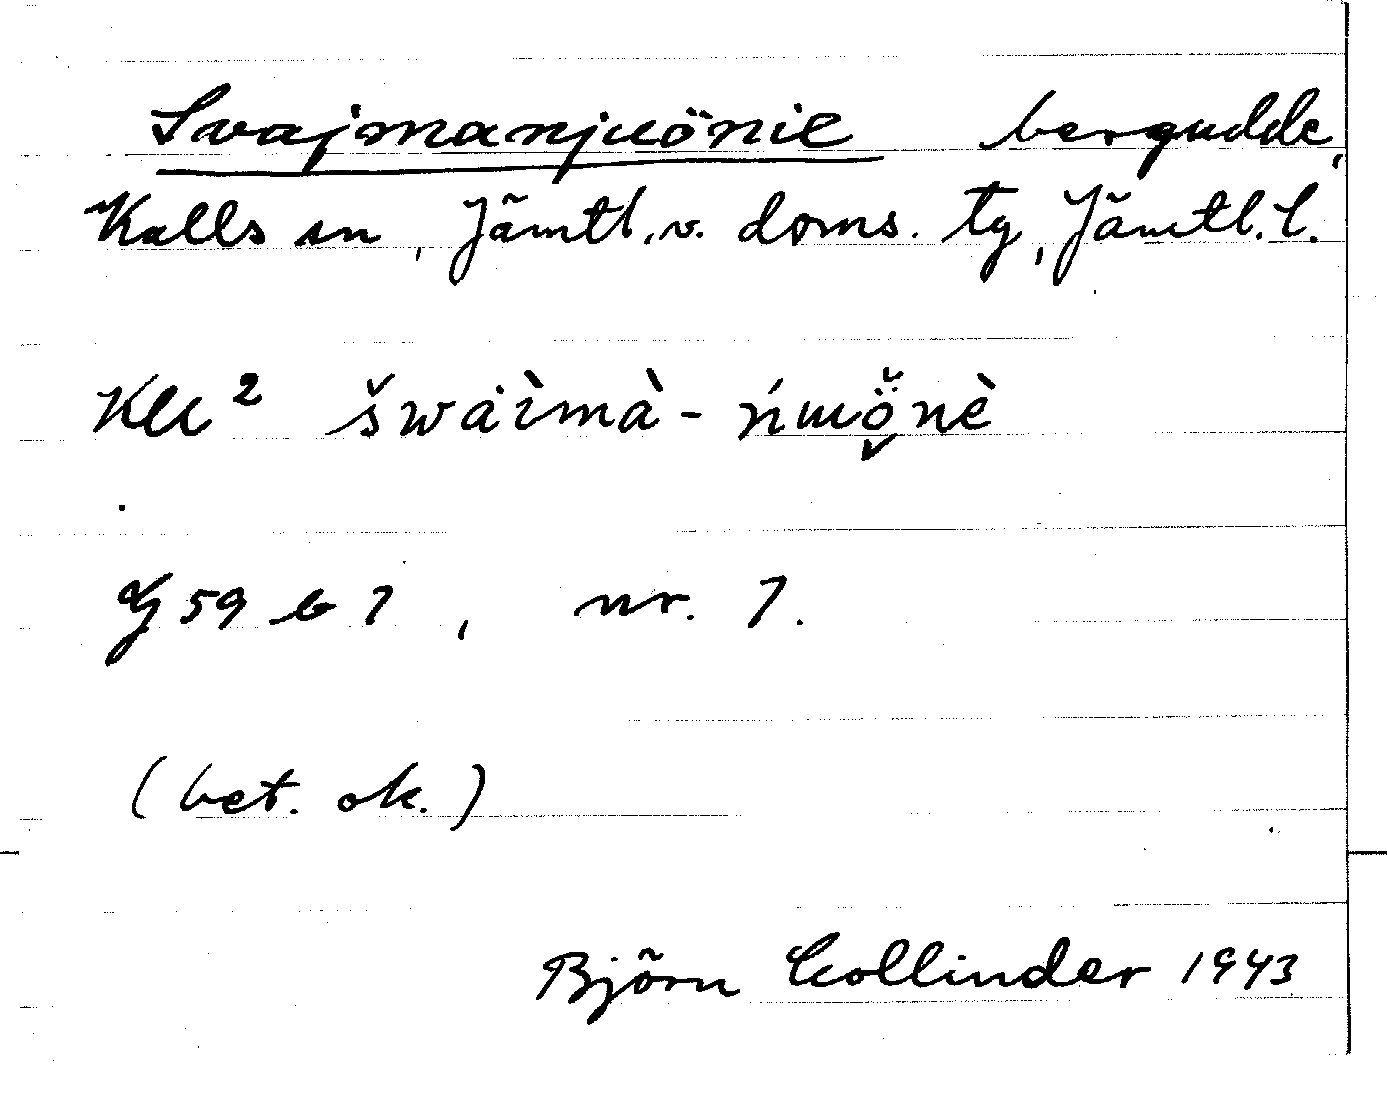 Svajmanjuönie bergudde,
Kalls sn, Jämtl. v. doms. tg, Jämtl. l.
Kll² šwàìmà-ńuö̭̌nè
G 59 b 1, nr. 7.
(bet. ok.)
Björn Collinder 1943